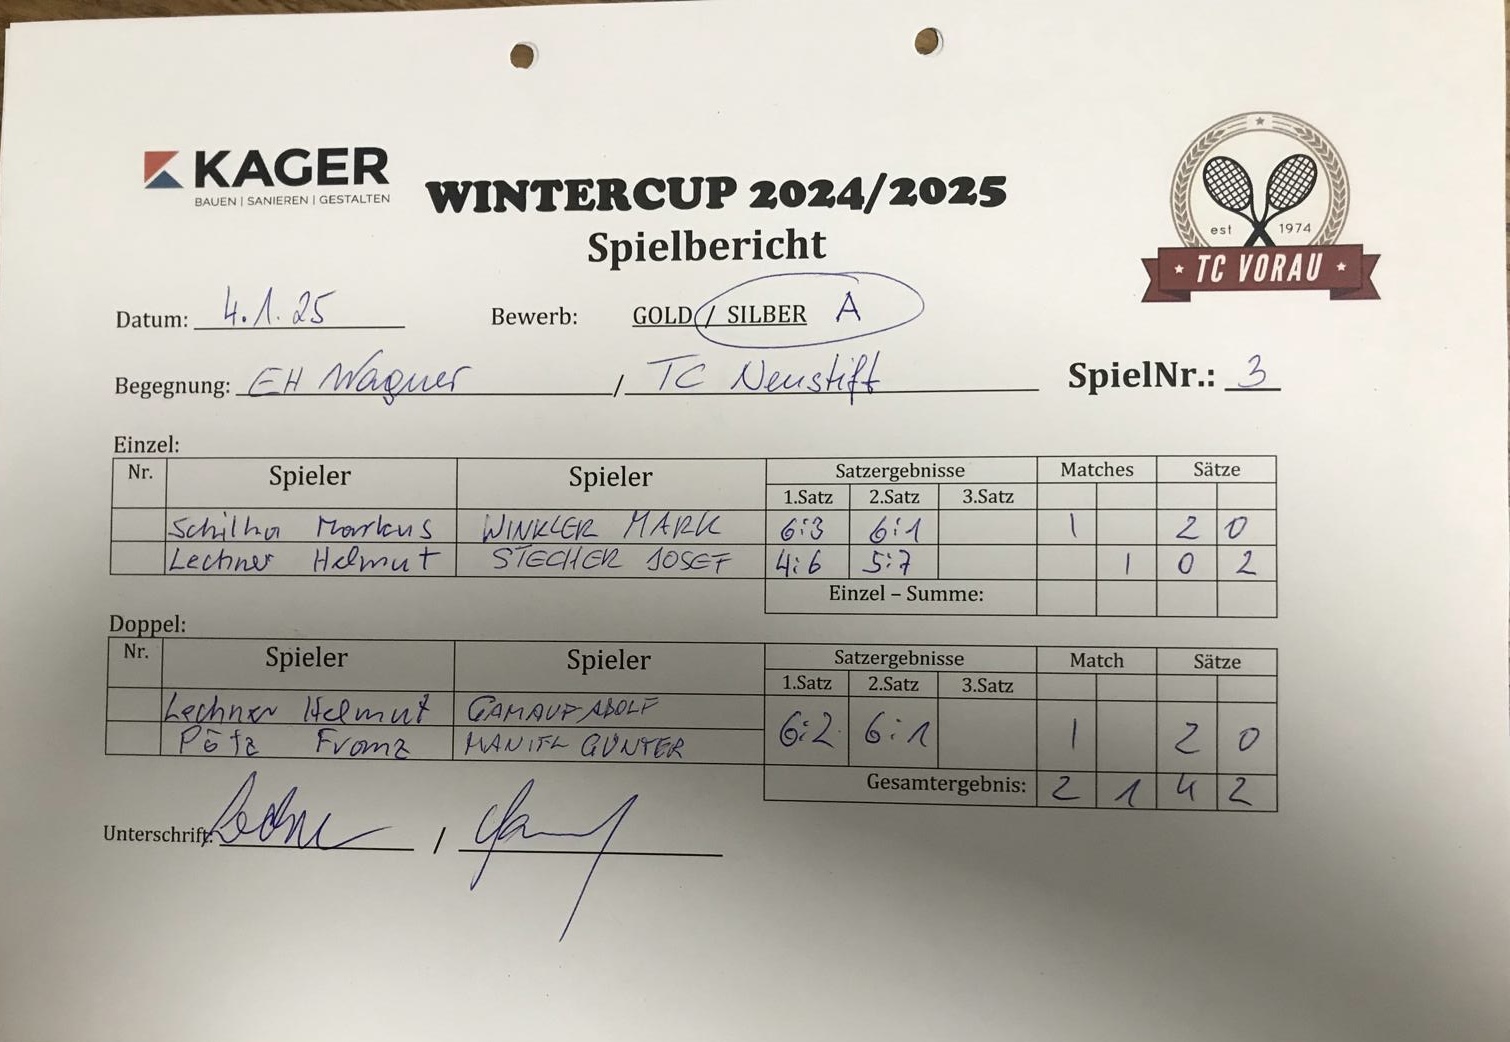 KAGER
BAUEN | SANIEREN | GESTALTEN
WINTERCUP 2024/2025
Spielbericht
est 1974
TC VORAU
Datum: 4.1.25 Bewerb: GOLD / SILBER A
Begegnung: EH Wagner / TC Neustift SpielNr.: 3
Einzel:
Nr. Spieler Spieler Satzergebnisse Matches Sätze
1.Satz 2.Satz 3.Satz
Schilha Markus WINKLER MARK 6:3 6:1 1 2 0
Lechner Helmut STECHER JOSEF 4:6 5:7 1 0 2
Einzel – Summe:
Doppel:
Nr. Spieler Spieler Satzergebnisse Match Sätze
1.Satz 2.Satz 3.Satz
Lechner Helmut GAMAUF ADOLF
6:2 6:1 1 2 0
Franz GÜNTER
Gesamtergebnis: 2 1 4 2
Unterschrift: /